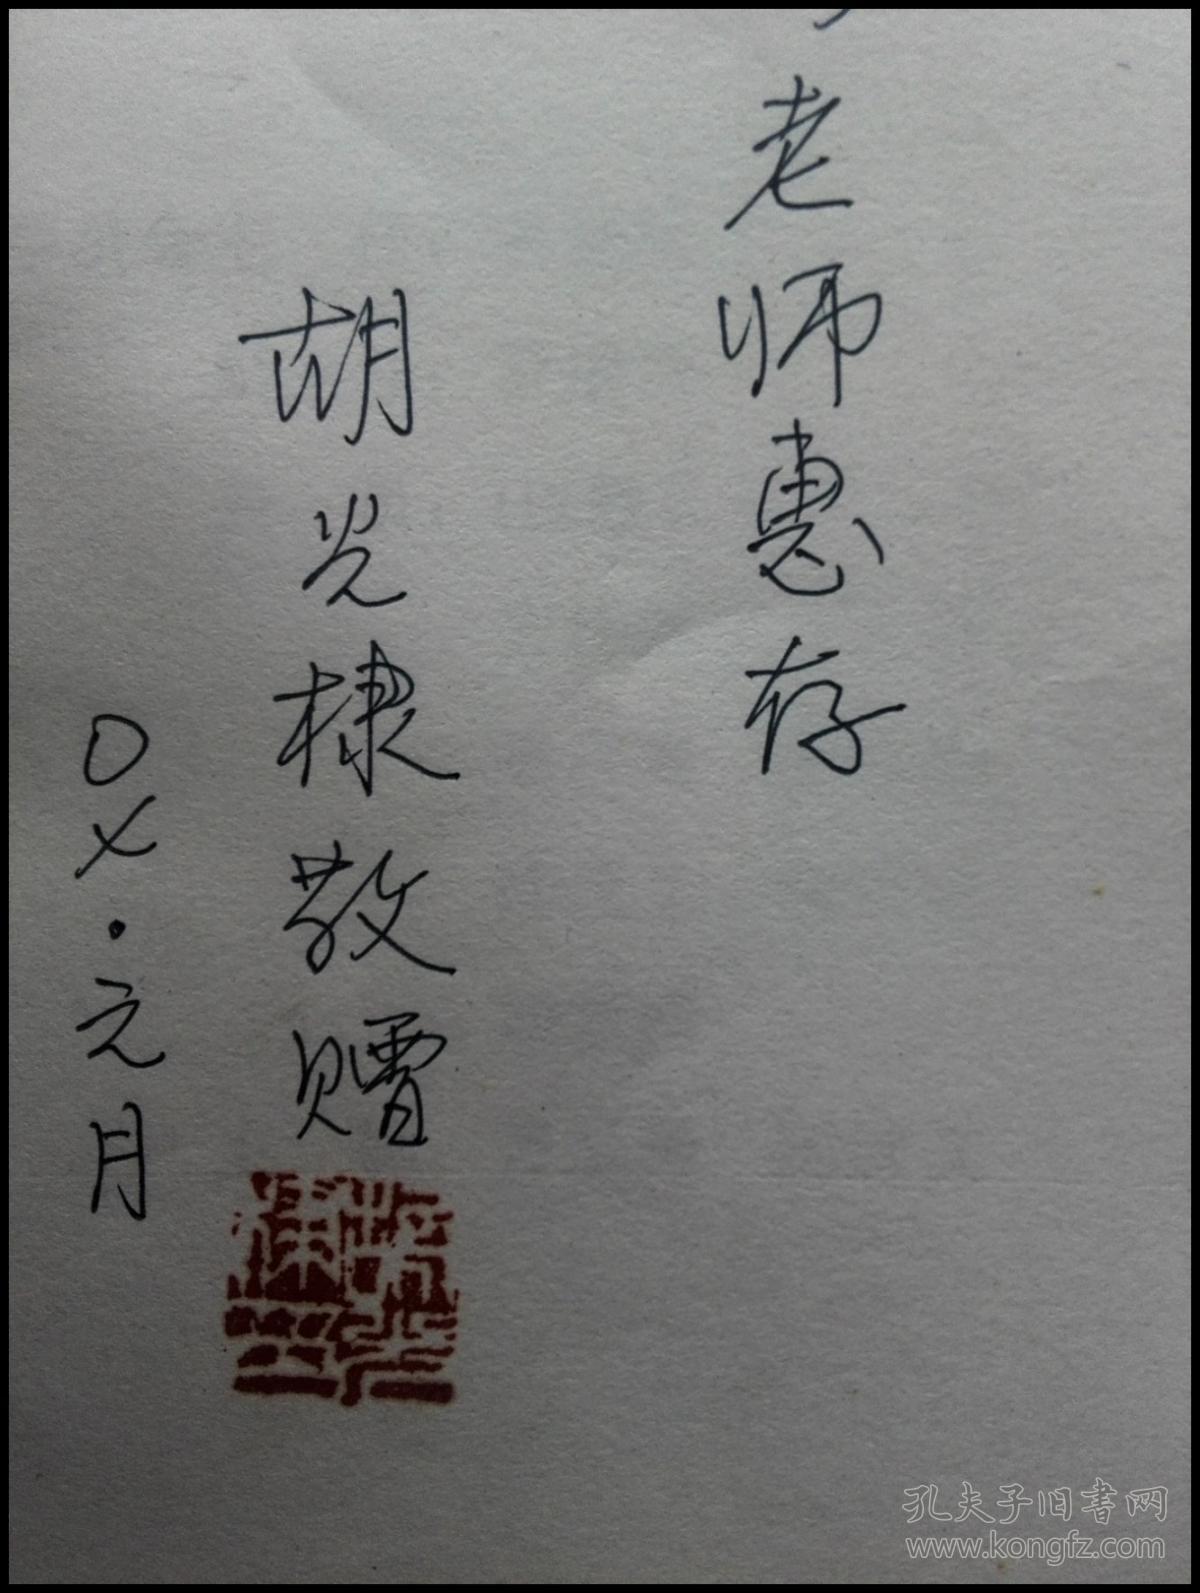 老师惠存
胡光棣敬赠
0七.元月
孔夫子旧书网
www.kongfz.com